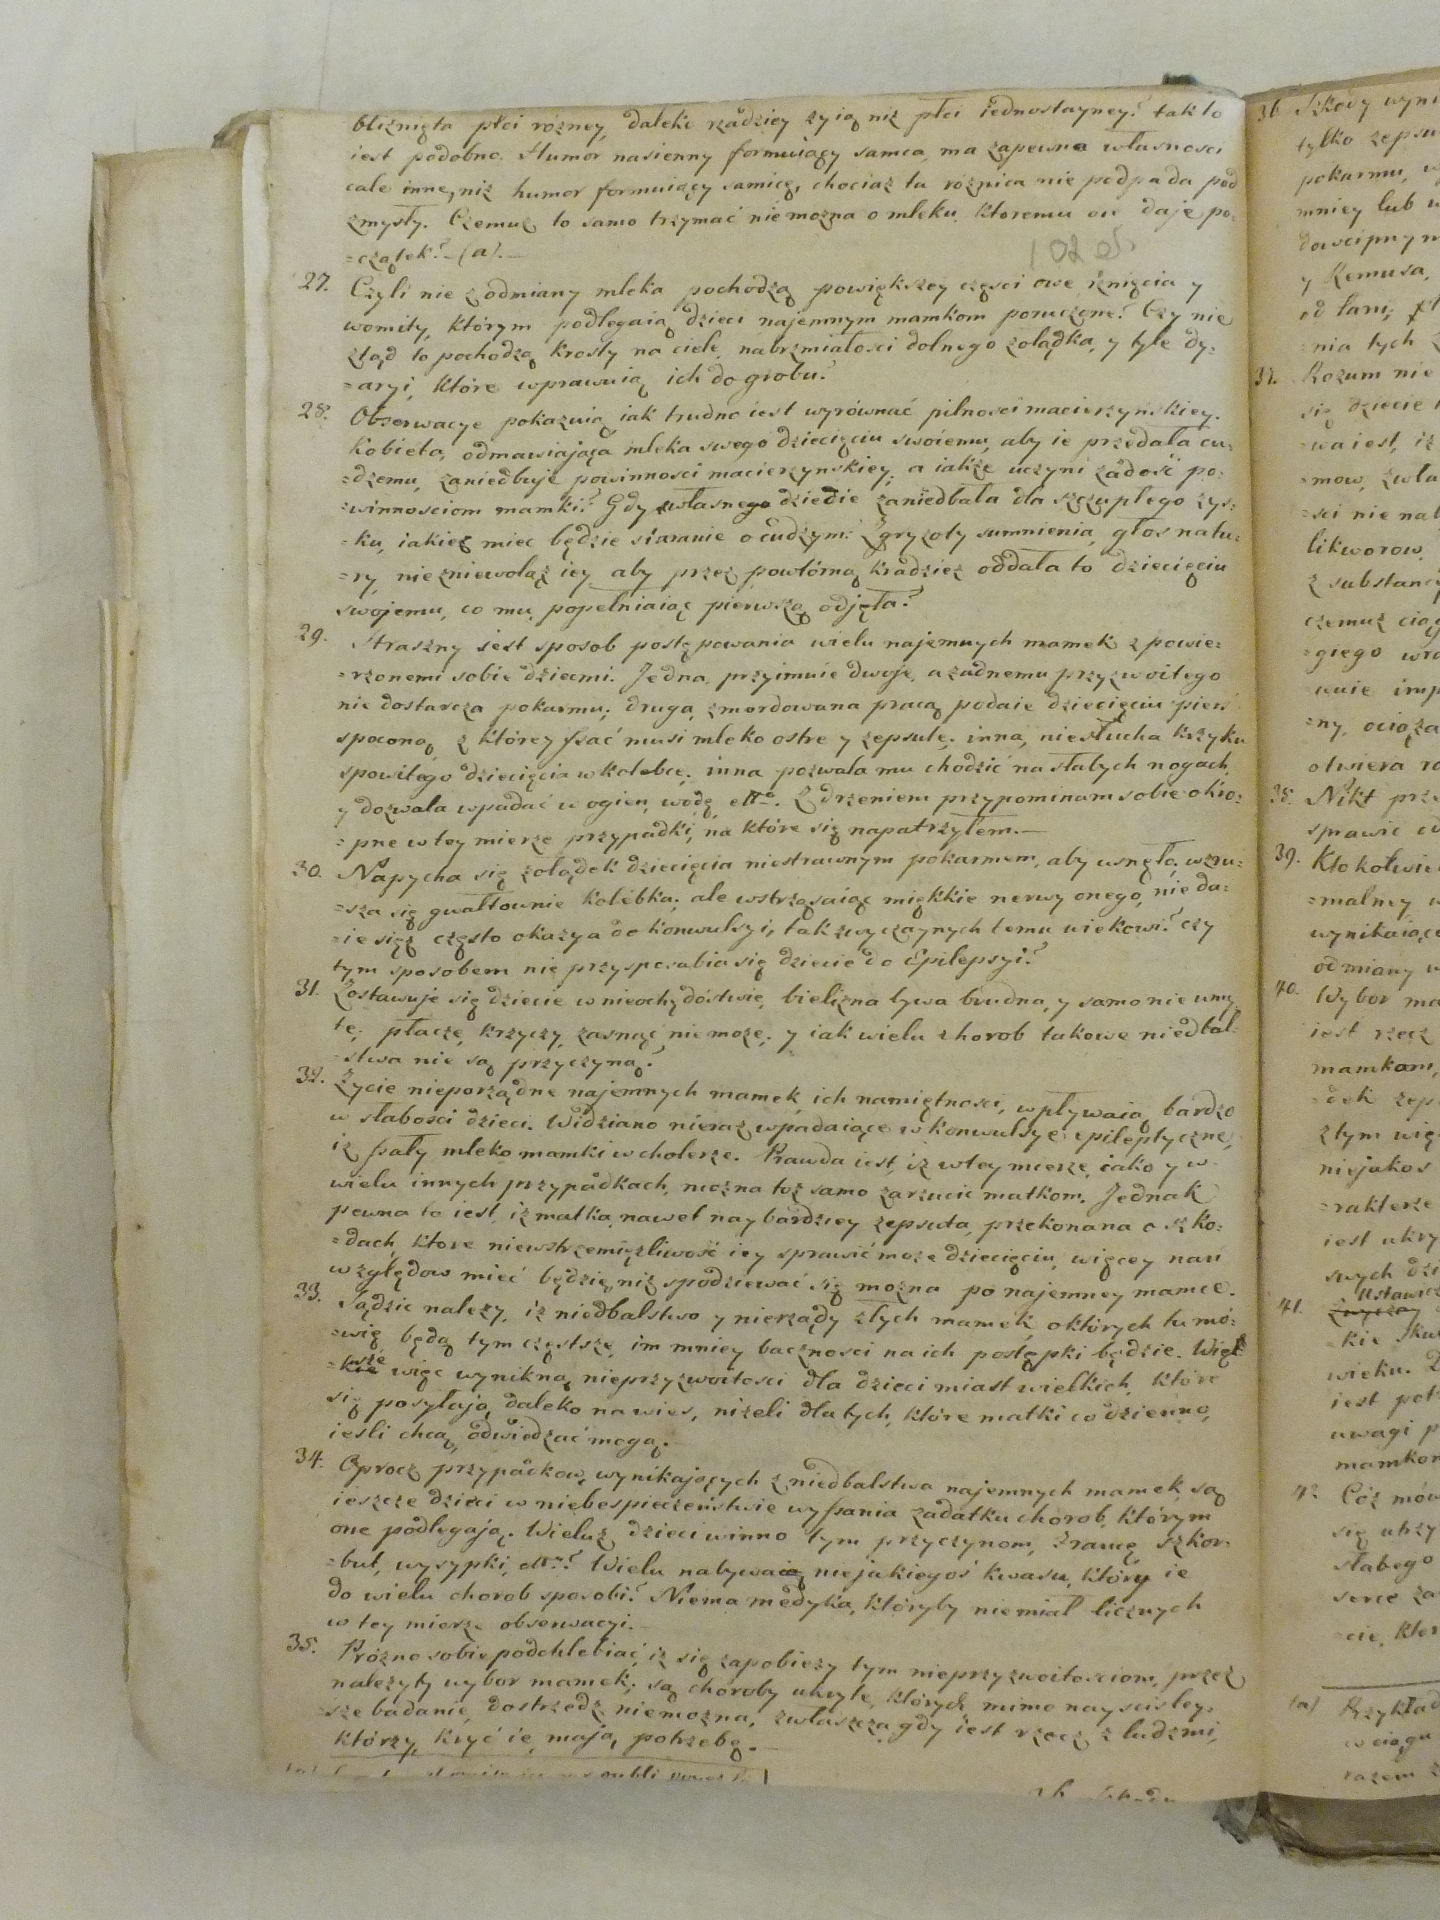 bliznięta płci rózney, daleko rzadziey zyią niż płci iednostayney? tak to
iest podobno. Humor nasienny formuiący samca, ma zapewne własnosci
cale inne, niż humor formuiący samicę, chociaz ta roznica nie podpada pod
zmysły. Czemuż to samo trzymać nie mozna o mleku, ktoremu on daje po:
=czątek? (a).
27. Czyli nie z odmiany mleka pochodzą powiększey częsci owe rznięcia y
womity, którym podlegaią dzieci najemnym mamkom poruczone? Czy nie
ztąd to pochodzą krosty na ciele, nabrzmiałosci dolnego zołądka, y tyle dy:
=aryi, które wprawuią ich do grobu?
28. Obserwacye pokazuią iak trudno iest wyrównać pilnosci macierzyńskiey.
Kobieta, odmawiająca mleka swego dziecięciu swoiemu, aby ie przedała cu:
=dzemu, zaniedbuje powinnosci macierzynskiey; a iakże uczyni zadość po:
=winnosciom mamki? Gdy własnego dziecie zaniedbała dla szczupłego zys:
=ku, iakież miec będzie staranie o cudzym? Zgryzoty sumnienia, głos natu:
=ry, nie zniewoląż iey, aby przez powtórną kradzież oddała to dziecięciu
swojemu, co mu, popełniaiąc pierwszą odjęła?
29. Straszny iest sposob postępowania wielu najemnych mamek z powie:
=rzonemi sobie dziecmi. Jedna, przyimuie dwoje, a zadnemu przyzwoitego
nie dostarcza pokarmu; druga, zmordowana pracą podaie dziecięciu pierś
spoconą, z którey ssać musi mleko ostre y zepsute; inna, nie słucha krzyku
spowitego dziecięcia w kolebce; inna pozwala mu chodzić na słabych nogach,
y dozwala wpadać w ogien, wodę, etc. Z drzeniem przypominam sobie okro:
=pne w tey mierze przypadki, na które się napatrzyłem.
30. Napycha się zołądek dziecięcia niestrawnym pokarmem, aby usnęło, wzru:
=sza się gwałtownie kolebka; ale wstrząsaiąc miękkie nerwy onego, nie da:
=ie sięż często okazya do konwulsyi, tak zwyczaynych temu wiekowi? czy
tym sposobem nie przysposabia się dziecie do Epilepsyi?
31. Zostawuje się dziecie w nieochędóstwie, bielizna bywa brudna, y samo nie umy
te; płacze, krzyczy, zasnąć nie moze; y iak wielu chorob takowe niedbal:
=stwa nie są przyczyną?
32. Zycie nieporządne najemnych mamek, ich namiętnosci, wpływaią bardzo
w słabości dzieci. Widziano nieraz wpadaiące w konwulsye epileptyczne,
iz ssały mleko mamki w cholerze. Prawda iest, iz w tey mierze, iako y w
wielu innych przypadkach, można toż samo zarzucic matkom. Jednak
pewna to iest, iz matka, nawet naybardziey zepsuta, przekonana o szko:
=dach, które niewstrzemięzliwość iey sprawić moze dziecięciu, więcey nań
względow mieć będzie, niż spodziewać się mozna po najemney mamce.
33. Sądzic nalezy, iz niedbalstwo y nierządy złych mamek, o których tu mó:
=wię, będą tym częstsze, im mniey bacznosci na ich postępki będzie. Więk
=sze więc wynikną nieprzyzwoitosci dla dzieci miast wielkich, które
się posyłają, daleko na wies, niżeli dla tych, które matki codzienno,
iesli chcą, odwiedzać mogą.
34. Oprocz przypadkow, wynikających z niedbalstwa najemnych mamek, są
ieszcze dzieci w niebespieczeństwie wyssania zadatku chorob, którym
one podlegają. Wieluż dzieci winno tym przyczynom, Francę, szkor:
=but, wysypki, etc.? Wielu nabywaią niejakiegoś kwasu, który ie
do wielu chorob sposobi? Niema medyka, któryby nie miał licznych
w tey mierze obserwacyi.
35. Prózno sobie podchlebiać, iz się zapobiezy tym nieprzyzwoitosciom, przez
nalezyty wybor mamek; są choroby ukryte, których mimo nayscisley:
=sze badanie, dostrzedz niemozna, zwłaszcza, gdy iest rzecz z ludzmi,
którzy, kryć ie, mają, potrzebę.
36. Szkody
tylko
pokarmu,
mniey lub
y Remusa,
nia tych
37. Rozum nie
się dziecie
sci nie
likworow,
z
czemuż
otwiera
38. Nikt
sprawic
39. Ktokolwiek
wynikaiące
odmiany
40. Wybor
iest rzecz
mamkom,
z tym
niejakos
iest
swych
41. Ustawicz
wieku.
iest
uwagi
42. Cóż
się
słabego
serce
(a) Przykład
w ciągu
razem